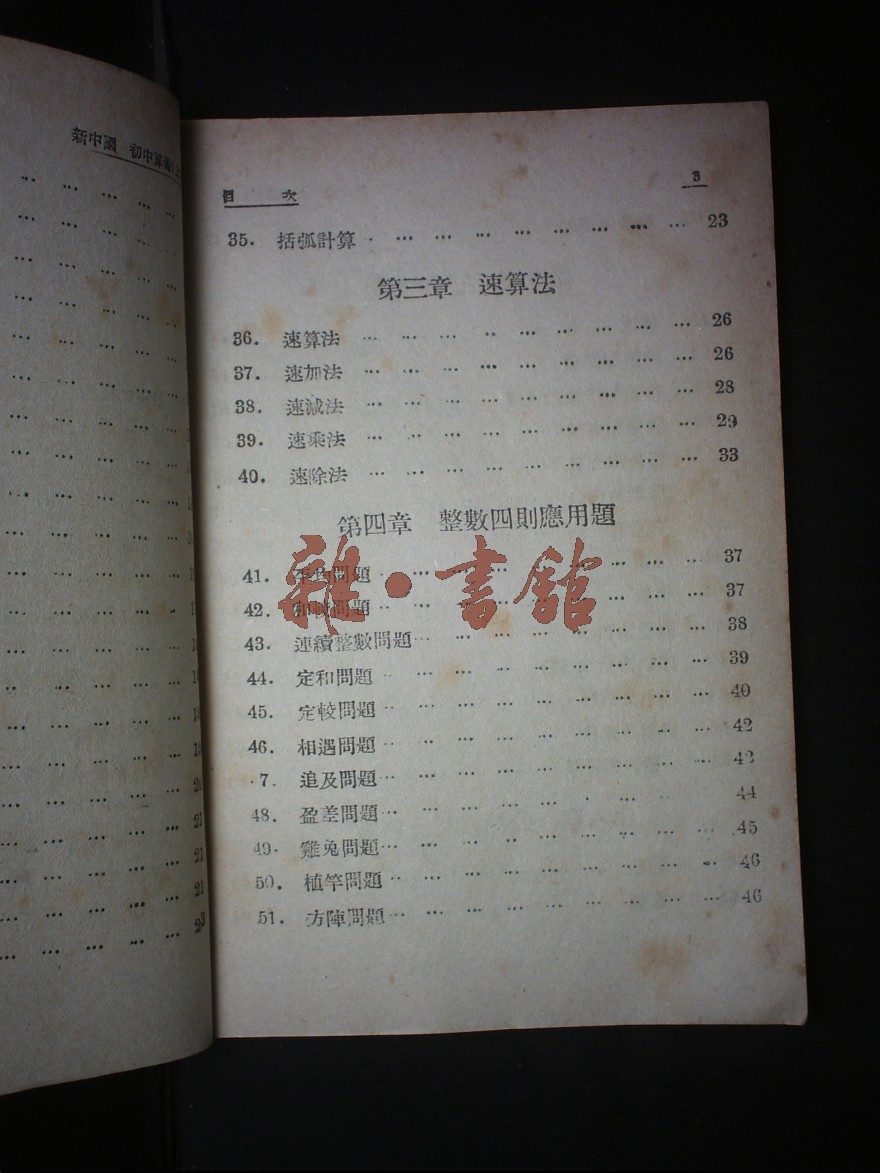 新中國 初中算術(上
目 次 3
35. 括弧計算 … … … … … … … … 23
第三章 速算法
36. 速算法 … … … … … … … … … 26
37. 速加法 … … … … … … … … … 26
38. 速減法 … … … … … … … … … 28
39. 速乘法 … … … … … … … … … 29
40. 速除法 … … … … … … … … … 33
第四章 整數四則應用題
41. 問題 … … … … … … … … 37
42. 問題 … … … … … … … … 37
雜·書館
43. 連續整數問題 … … … … … … … 38
44. 定和問題 … … … … … … … … 39
45. 定較問題 … … … … … … … … 40
46. 相遇問題 … … … … … … … … 42
7. 追及問題 … … … … … … … … 42
48. 盈差問題 … … … … … … … 44
49. 雞兔問題 … … … … … … … … 45
50. 植竿問題 … … … … … … … … 46
51. 方陣問題 … … … … … … … … 46